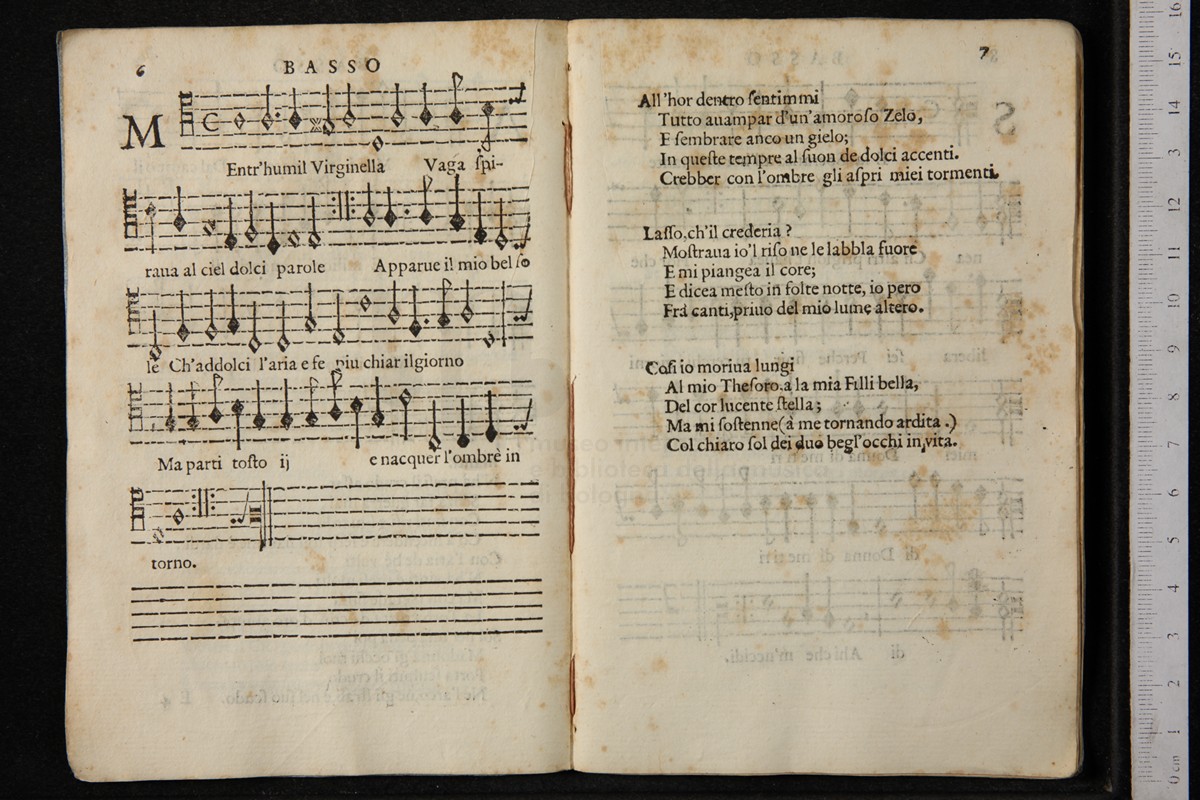 6 BASSO
MEntr'humil Virginella Vaga ſpi-
raua al ciel dolci parole Apparue il mio bel ſo
le Ch'addolci l'aria e fe piu chiar ilgiorno
Ma parti toſto ij e nacquer l'ombrè in
torno.
7
All'hor dentro ſentimmi
Tutto auampar d'un'amoroſo Zelo,
E ſembrare anco un gielo;
In queſte tempre al ſuon de dolci accenti.
Crebber con l'ombre gli aſpri miei tormenti.
Laſſo, ch'il crederia ?
Moſtraua io'l riſo ne le labbla fuore
E mi piangea il core;
E dicea meſto in folte notte, io pero
Frà canti, priuo del mio lume altero.
Coſi io moriua lungi
Al mio Theſoro. a la mia Filli bella,
Del cor lucente ſtella;
Ma mi ſoſtenne (à me tornando ardita .)
Col chiaro ſol dei duo begl'occhi in vita.
museo
e biblioteca della musica
di bologna
0 cm 1 2 3 4 5 6 7 8 9 10 11 12 13 14 15 16